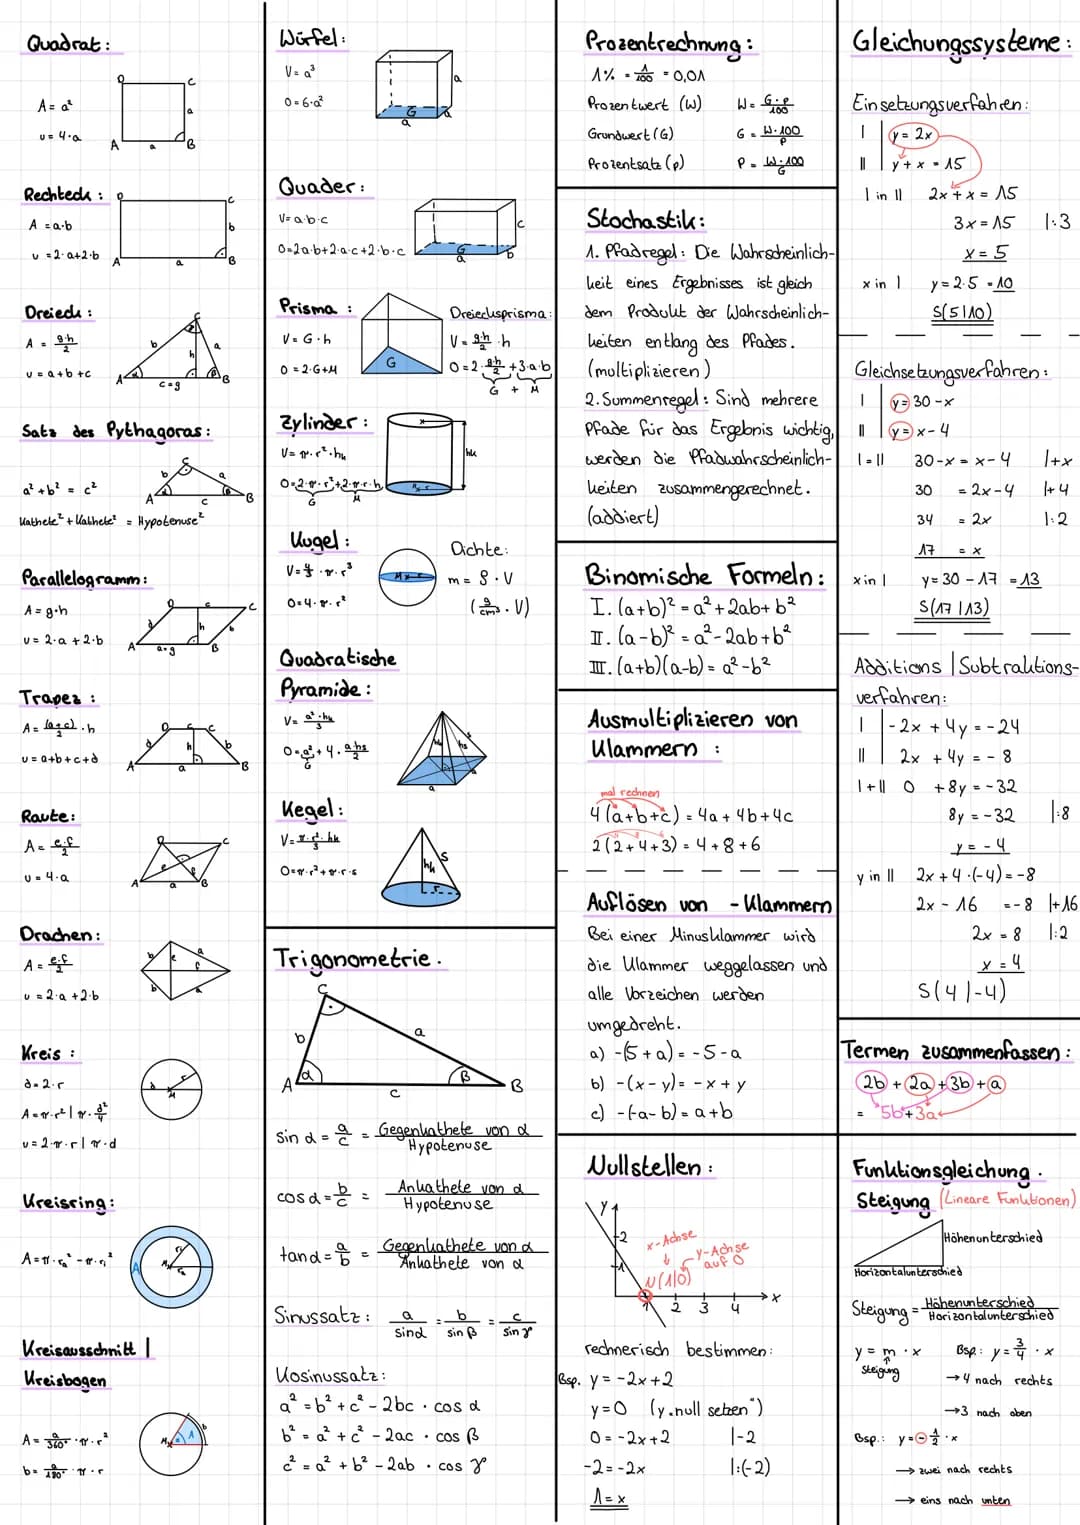 Quadrat:
A = a²
u = 4·a
D
C
a
A
a
B
Rechteck:
A = a·b
u = 2·a+2·b
D
C
b
A
a
B
Dreieck:
A = g·h/2
u = a+b+c
C
b
a
h
A
α
β
B
c=g
Satz des Pythagoras:
a² + b² = c²
Kathete² + Kathete² = Hypotenuse²
C
b
a
A
α
β
c
B
Parallelogramm:
A = g·h
u = 2·a + 2·b
D
c
C
d
h
b
A
a=g
B
Trapez:
A = (a+c)/2 · h
u = a+b+c+d
D
c
C
d
h
b
A
a
B
Raute:
A = e·f/2
u = 4·a
D
C
e
f
A
a
B
Drachen:
A = e·f/2
u = 2·a + 2·b
b
a
e
f
b
a
Kreis:
d = 2·r
A = π·r² | π·d²/4
u = 2·π·r | π·d
d
r
M
Kreisring:
A = π·rₐ² - π·rᵢ²
A
rᵢ
M
rₐ
Kreisausschnitt |
Kreisbogen
A = α/360° ·π·r²
b = α/180° ·π·r
M
α
A
b
Würfel:
V = a³
O = 6·a²
a
G
a
a
Quader:
V = a·b·c
O=2a·b+2·a·c+2·b·c
c
G
a
b
Prisma:
V = G·h
O = 2·G+M
G
Dreiecksprisma:
V = g·h/2 ·h
O=2·g·h/2+3·a·b
G + M
Zylinder:
V = π·r²·hₖ
O=2·π·r²+2·π·r·h
G
M
hₖ
r
Kugel:
V = 4/3 ·π·r³
O = 4·π·r²
M
r
Dichte:
m = ϱ · V
(g/cm³ · V)
Quadratische
Pyramide:
V = a²·hₖ/3
O = a² + 4·a·hₛ/2
G
hₖ
hs
a
Kegel:
V = π·r²·hₖ/3
O=π·r²+π·r·s
hₖ
s
r
Trigonometrie.
C
b
a
A
α
β
B
c
sin α = a/c = Gegenkathete von α/Hypotenuse
cos α = b/c = Ankathete von α/Hypotenuse
tan α = a/b = Gegenkathete von α/Ankathete von α
Sinussatz: a/sin α = b/sin β = c/sin γ
Kosinussatz:
a² = b² + c² - 2bc · cos α
b² = a² + c² - 2ac · cos β
c² = a² + b² - 2ab · cos γ
Prozentrechnung:
1% = 1/100 = 0,01
Prozentwert (W) W = G·p/100
Grundwert (G) G = W·100/p
Prozentsatz (p) P = W·100/G
Stochastik:
1. Pfadregel: Die Wahrscheinlich-
keit eines Ergebnisses ist gleich
dem Produkt der Wahrscheinlich-
keiten entlang des Pfades.
(multiplizieren)
2. Summenregel: Sind mehrere
Pfade für das Ergebnis wichtig,
werden die Pfadwahrscheinlich-
keiten zusammengerechnet.
(addiert)
Binomische Formeln:
I. (a+b)² = a² + 2ab + b²
II. (a-b)² = a² - 2ab + b²
III. (a+b)(a-b) = a² - b²
Ausmultiplizieren von
Klammern :
mal rechnen
4(a+b+c) = 4a + 4b + 4c
2(2+4+3) = 4+8+6
Auflösen von - Klammern
Bei einer Minusklammer wird
die Klammer weggelassen und
alle Vorzeichen werden
umgedreht.
a) -(5+a) = -5-a
b) -(x-y) = -x+y
c) -(-a-b) = a+b
Nullstellen:
y
2
1
x-Achse
y-Achse
auf 0
N(1|0)
1 2 3 4 x
rechnerisch bestimmen:
Bsp. y = -2x+2
y=0 (y „null setzen")
0 = -2x+2 |-2
-2 = -2x |:(-2)
1 = x
Gleichungssysteme:
Einsetzungsverfahren:
I y = 2x
II y + x = 15
I in II 2x + x = 15
3x = 15 |:3
x = 5
x in I y = 2·5 = 10
S(5|10)
Gleichsetzungsverfahren:
I y = 30 - x
II y = x - 4
I = II 30 - x = x - 4 |+x
30 = 2x - 4 |+4
34 = 2x |:2
17 = x
x in I y = 30 - 17 = 13
S(17|13)
Additions | Subtraktions-
verfahren:
I -2x + 4y = -24
II 2x + 4y = -8
I+II 0 + 8y = -32
8y = -32 |:8
y = -4
y in II 2x + 4·(-4) = -8
2x - 16 = -8 |+16
2x = 8 |:2
x = 4
S(4|-4)
Termen zusammenfassen:
2b + 2a + 3b + a
= 5b + 3a
Funktionsgleichung.
Steigung (Lineare Funktionen)
Höhenunterschied
Horizontalunterschied
Steigung = Höhenunterschied/Horizontalunterschied
y = m · x Bsp.: y = 3/4 · x
Steigung
→ 4 nach rechts
→ 3 nach oben
Bsp.: y = -1/2 · x
→ zwei nach rechts
→ eins nach unten